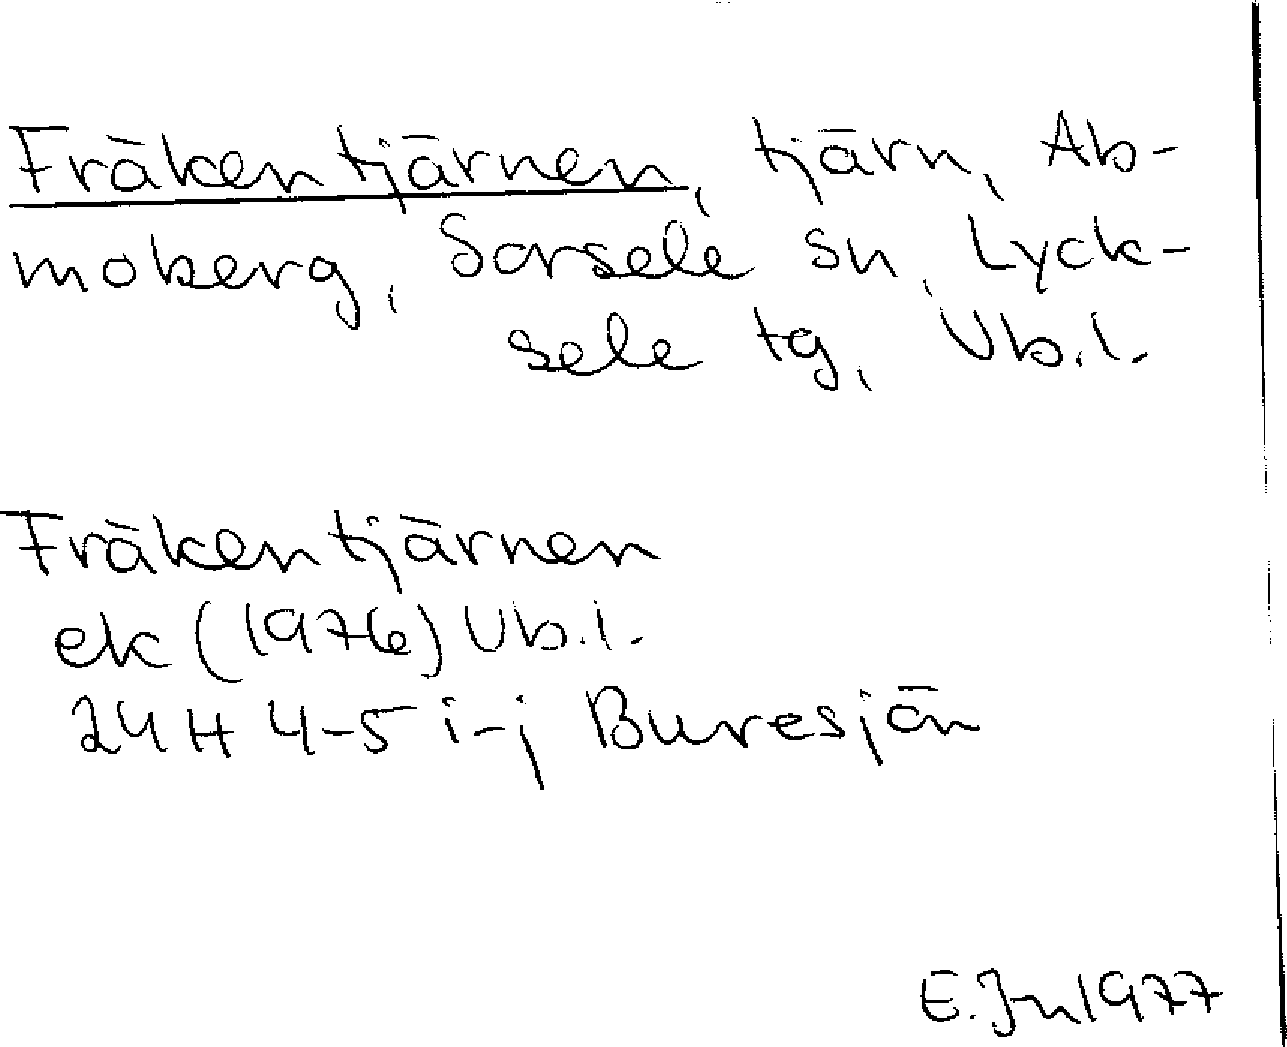 Fräkentjärnen, tjärn, Ab-
moberg, Sorsele sn, Lyck-
sele tg, Vb.l.
Fräkentjärnen
ek (1976) Vb.l.
24H 4-5 i-j Buresjön
E.Jn 1977